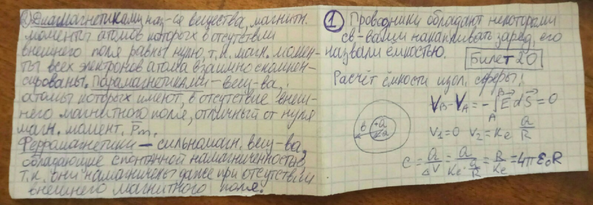 Диамагнетиками наз-ся вещества, магнитн.
моменты атомов которых в отсутствии
внешнего поля равны нулю, т.к. магн. момен-
ты всех электронов атома взаимно скомпен-
сированы. Парамагнетики - веще-ва,
атомы которых имеют, в отсутствие внеш-
него магнитного поля, отличный от нуля
магн. момент Pm.
Ферромагнетики - сильномагн. вещ-ва,
обладающие спонтанной намагниченностью
т.к. они намагничены даже при отсутствии
внешнего магнитного поля.
1 Проводники обладают некоторыми
св-вами накапливать заряд, его
назвали ёмкостью. Билет 20
Расчёт ёмкости сферы:
VB-VA = -∫ E dS = 0
V2=0 V2=Ke Q/R
C = Q/ΔV = = R/Ke = 4πε0R